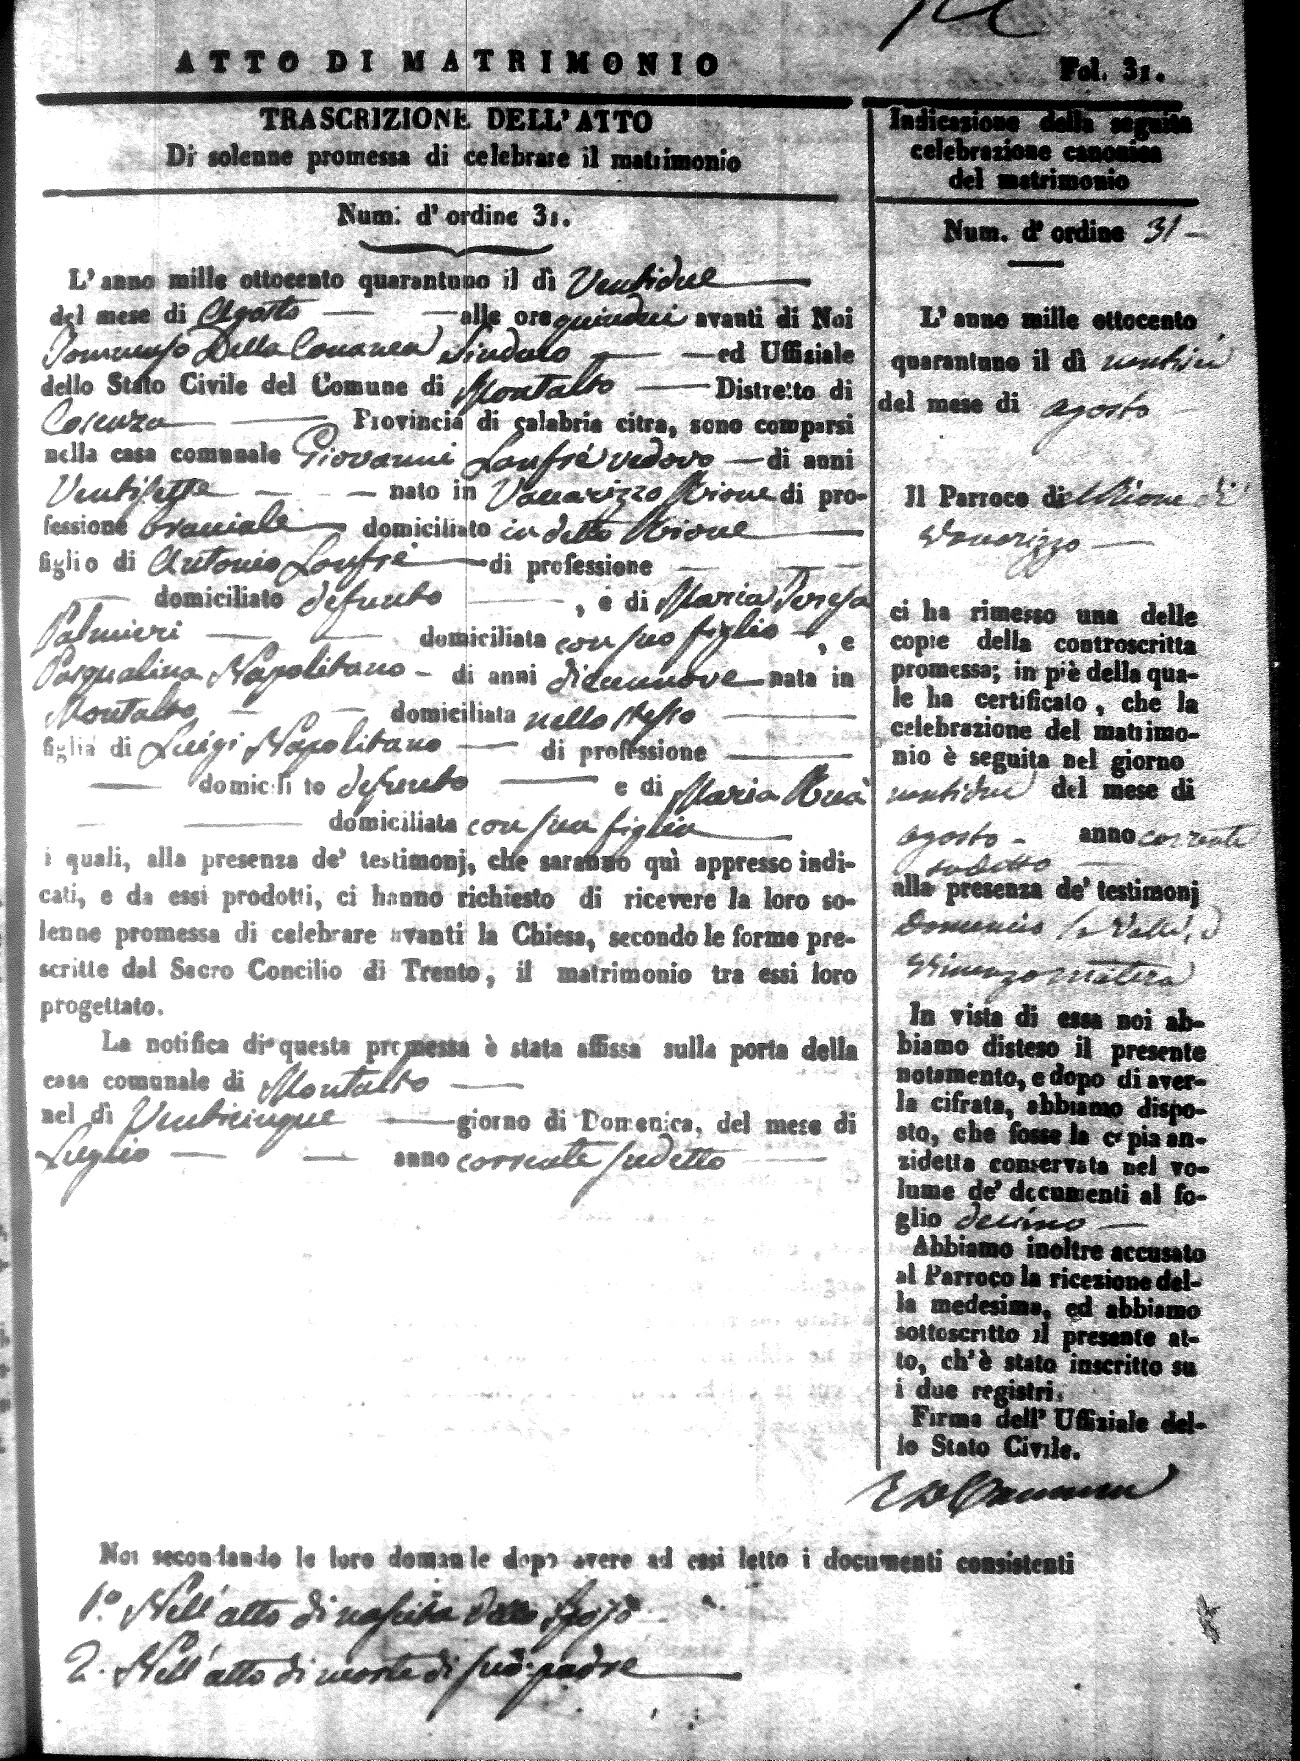 ATTO DI MATRIMONIO
Fol. 31.
TRASCRIZIONE DELL'ATTO
Di solenne promessa di celebrare il matrimonio
Num. d'ordine 31.
L'anno mille ottocento quarantuno il dì Ventidue
del mese di Agosto alle ore quindici avanti di Noi
Della Sindaco ed Uffiziale
dello Stato Civile del Comune di Montalto Distretto di
Cosenza Provincia di calabria citra, sono comparsi
nella casa comunale Giovanni Lanfrè vedovo di anni
Ventisette nato in Vaccarizzo Rione di pro-
fessione braciale domiciliato in detto Rione
figlio di Antonio Lanfrè di professione
domiciliato defunto , e di Maria Teresa
Palmieri domiciliata con suo figlio , e
Pasqualina Napolitano di anni diecinnove nata in
Montalto domiciliata nello stesso
figlia di Luigi Napolitano di professione
domicili to defunto e di Maria
domiciliata con sua figlia
i quali, alla presenza de' testimonj, che saranno quì appresso indi-
cati, e da essi prodotti, ci hanno richiesto di ricevere la loro so-
lenne promessa di celebrare avanti la Chiesa, secondo le forme pre-
scritte dal Sacro Concilio di Trento, il matrimonio tra essi loro
progettato.
La notifica di questa promessa è stata affissa sulla porta della
casa comunale di Montalto
nel dì Venticinque giorno di Domenica, del mese di
Luglio anno corrente sudetto
Indicazione della seguita
celebrazione canonica
del matrimonio
Num. d'ordine 31
L'anno mille ottocento
quarantuno il dì
del mese di agosto
Il Parroco di Rione di
Vaccarizzo
ci ha rimesso una delle
copie della controscritta
promessa; in piè della qua-
le ha certificato, che la
celebrazione del matrimo-
nio è seguita nel giorno
ventidue del mese di
agosto anno corrente
sudetto
alla presenza de' testimonj
Domenico
Vincenzo Matera
In vista di essa noi ab-
biamo disteso il presente
notamento, e dopo di aver-
la cifrata, abbiamo dispo-
sto, che fosse la copia an-
zidetta conservata nel vo-
lume de' documenti al fo-
glio decimo
Abbiamo inoltre accusato
al Parroco la ricezione del-
la medesima, ed abbiamo
sottoscritto il presente at-
to, ch'è stato inscritto su
i due registri.
Firma dell' Uffiziale del-
lo Stato Civile.
Noi secondando le loro domande dopo avere ad essi letto i documenti consistenti
1.° Nell'atto di nascita dello sposo
2. Nell'atto di morte di suo padre